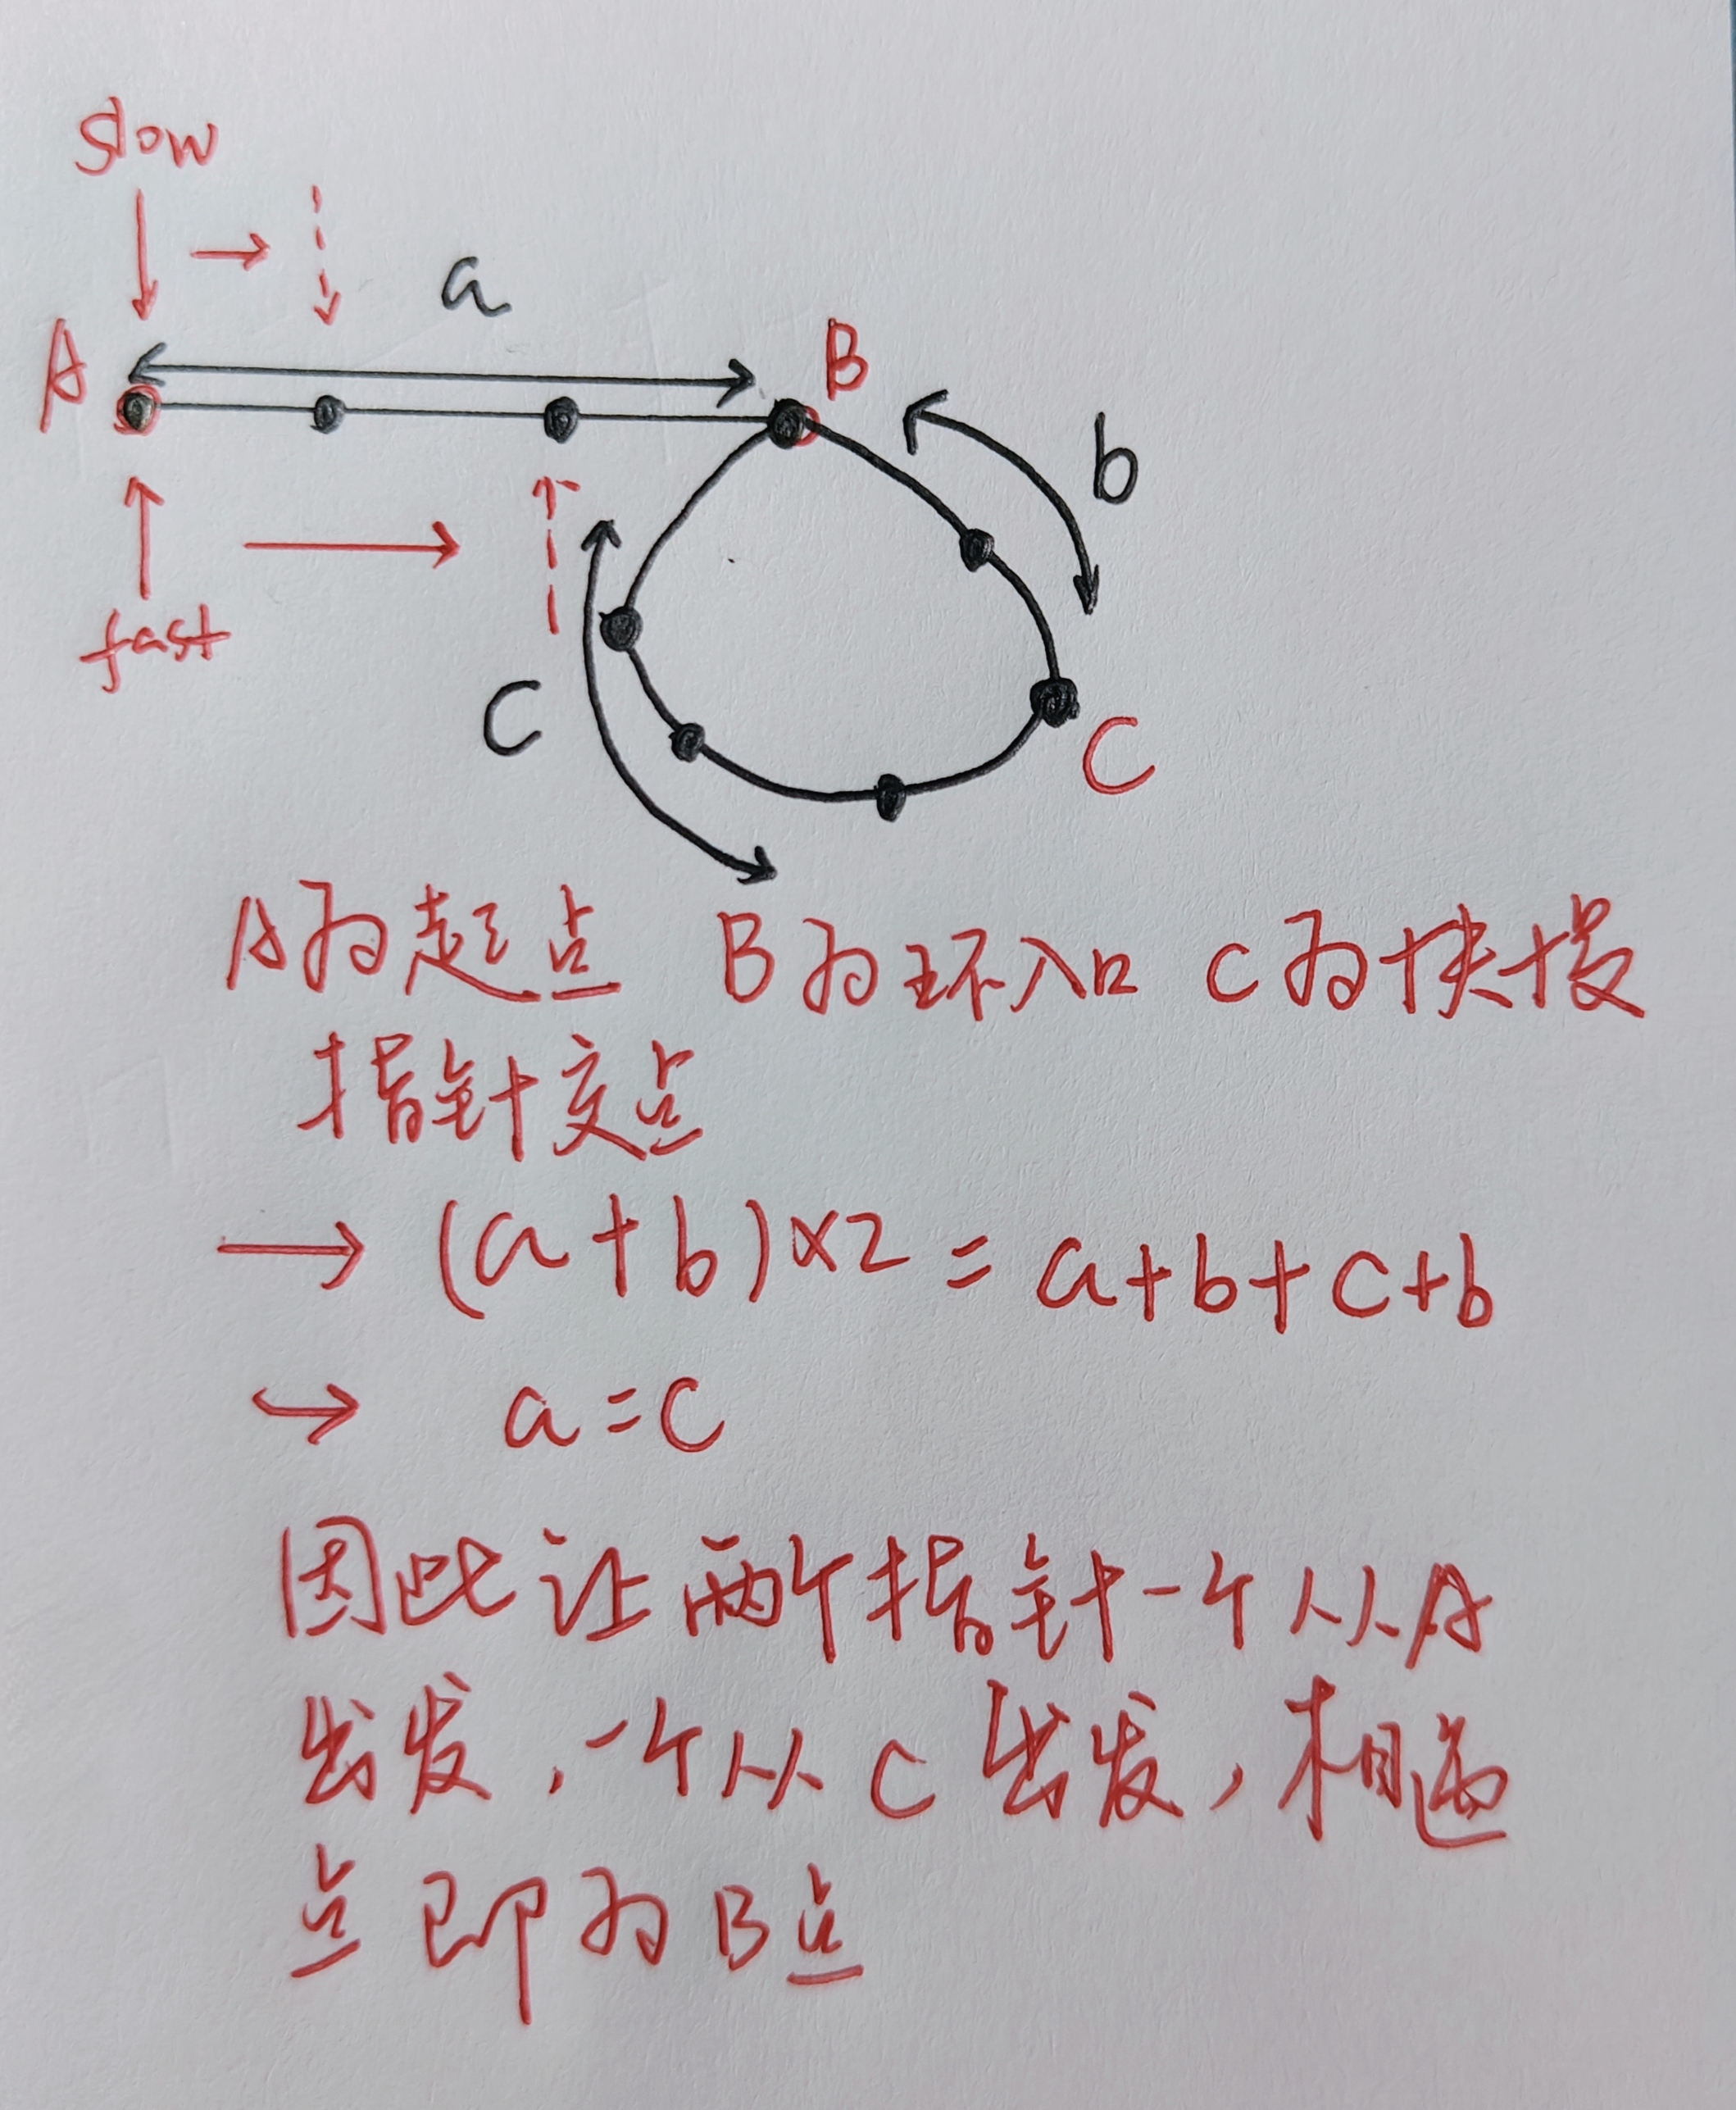 slow
a
A
B
b
fast
c
C
A为起点 B为环入口 C为快慢
指针交点
→ (a+b)×2 = a+b+c+b
↪ a=c
因此让两个指针一个从A
出发,一个从C出发,相遇
点即为B点